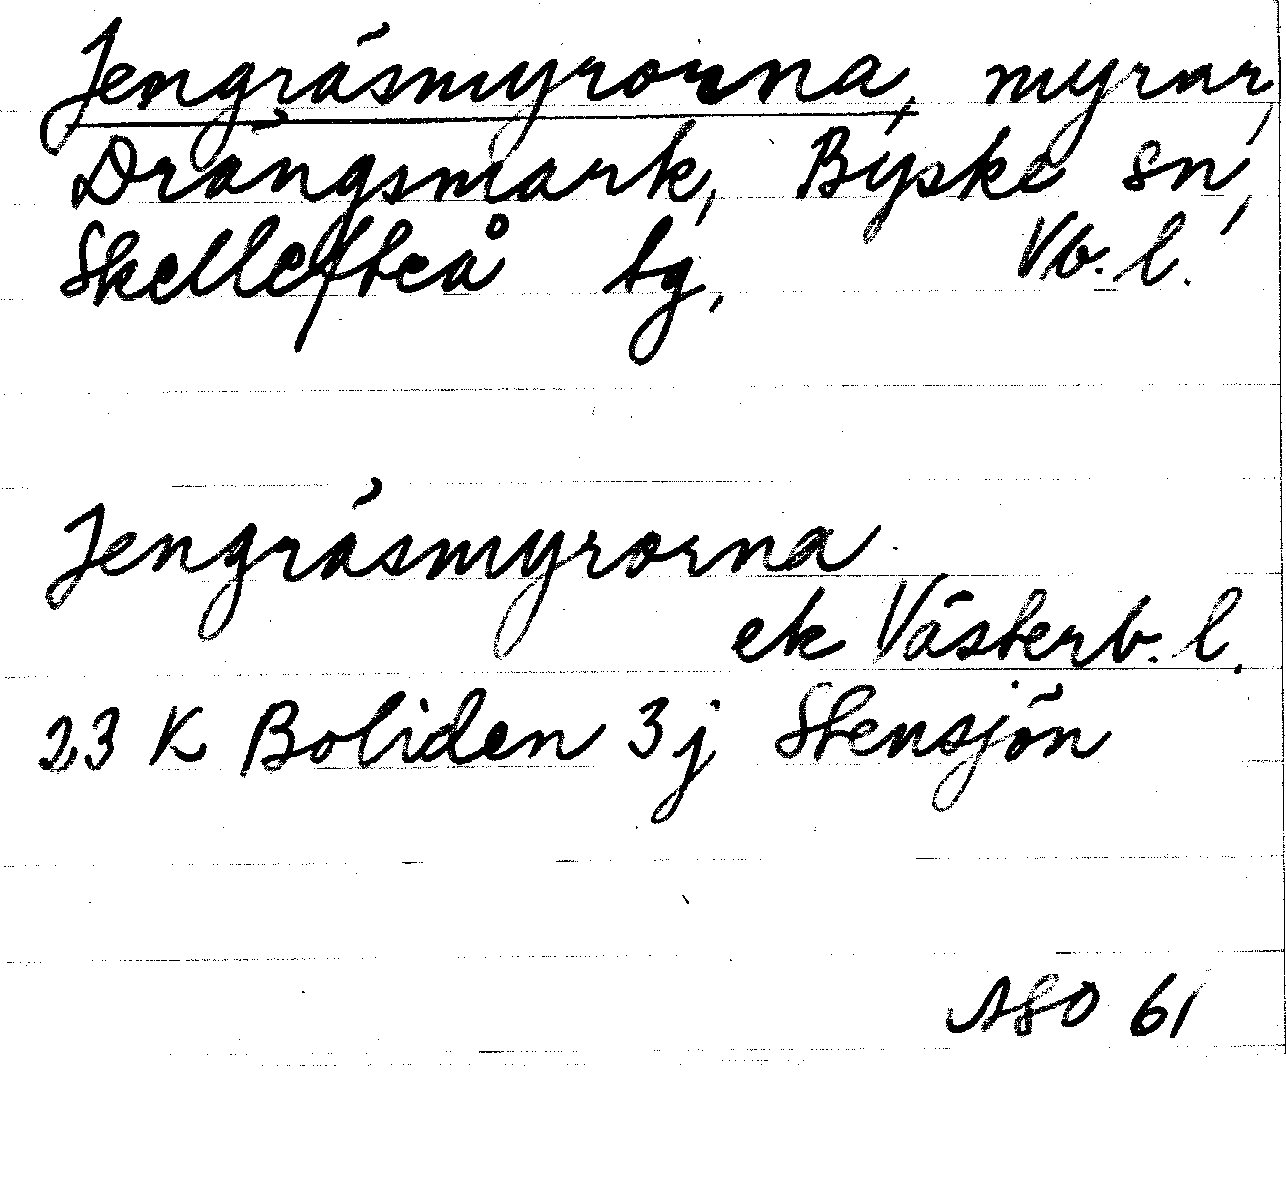 Jengräsmyrorna, myrar,
Drängsmark, Byske sn,
Skellefteå tg, Vb. l.
Jengräsmyrorna
ek Västerb. l.
23 K Boliden 3j Stensjön
ASO 61